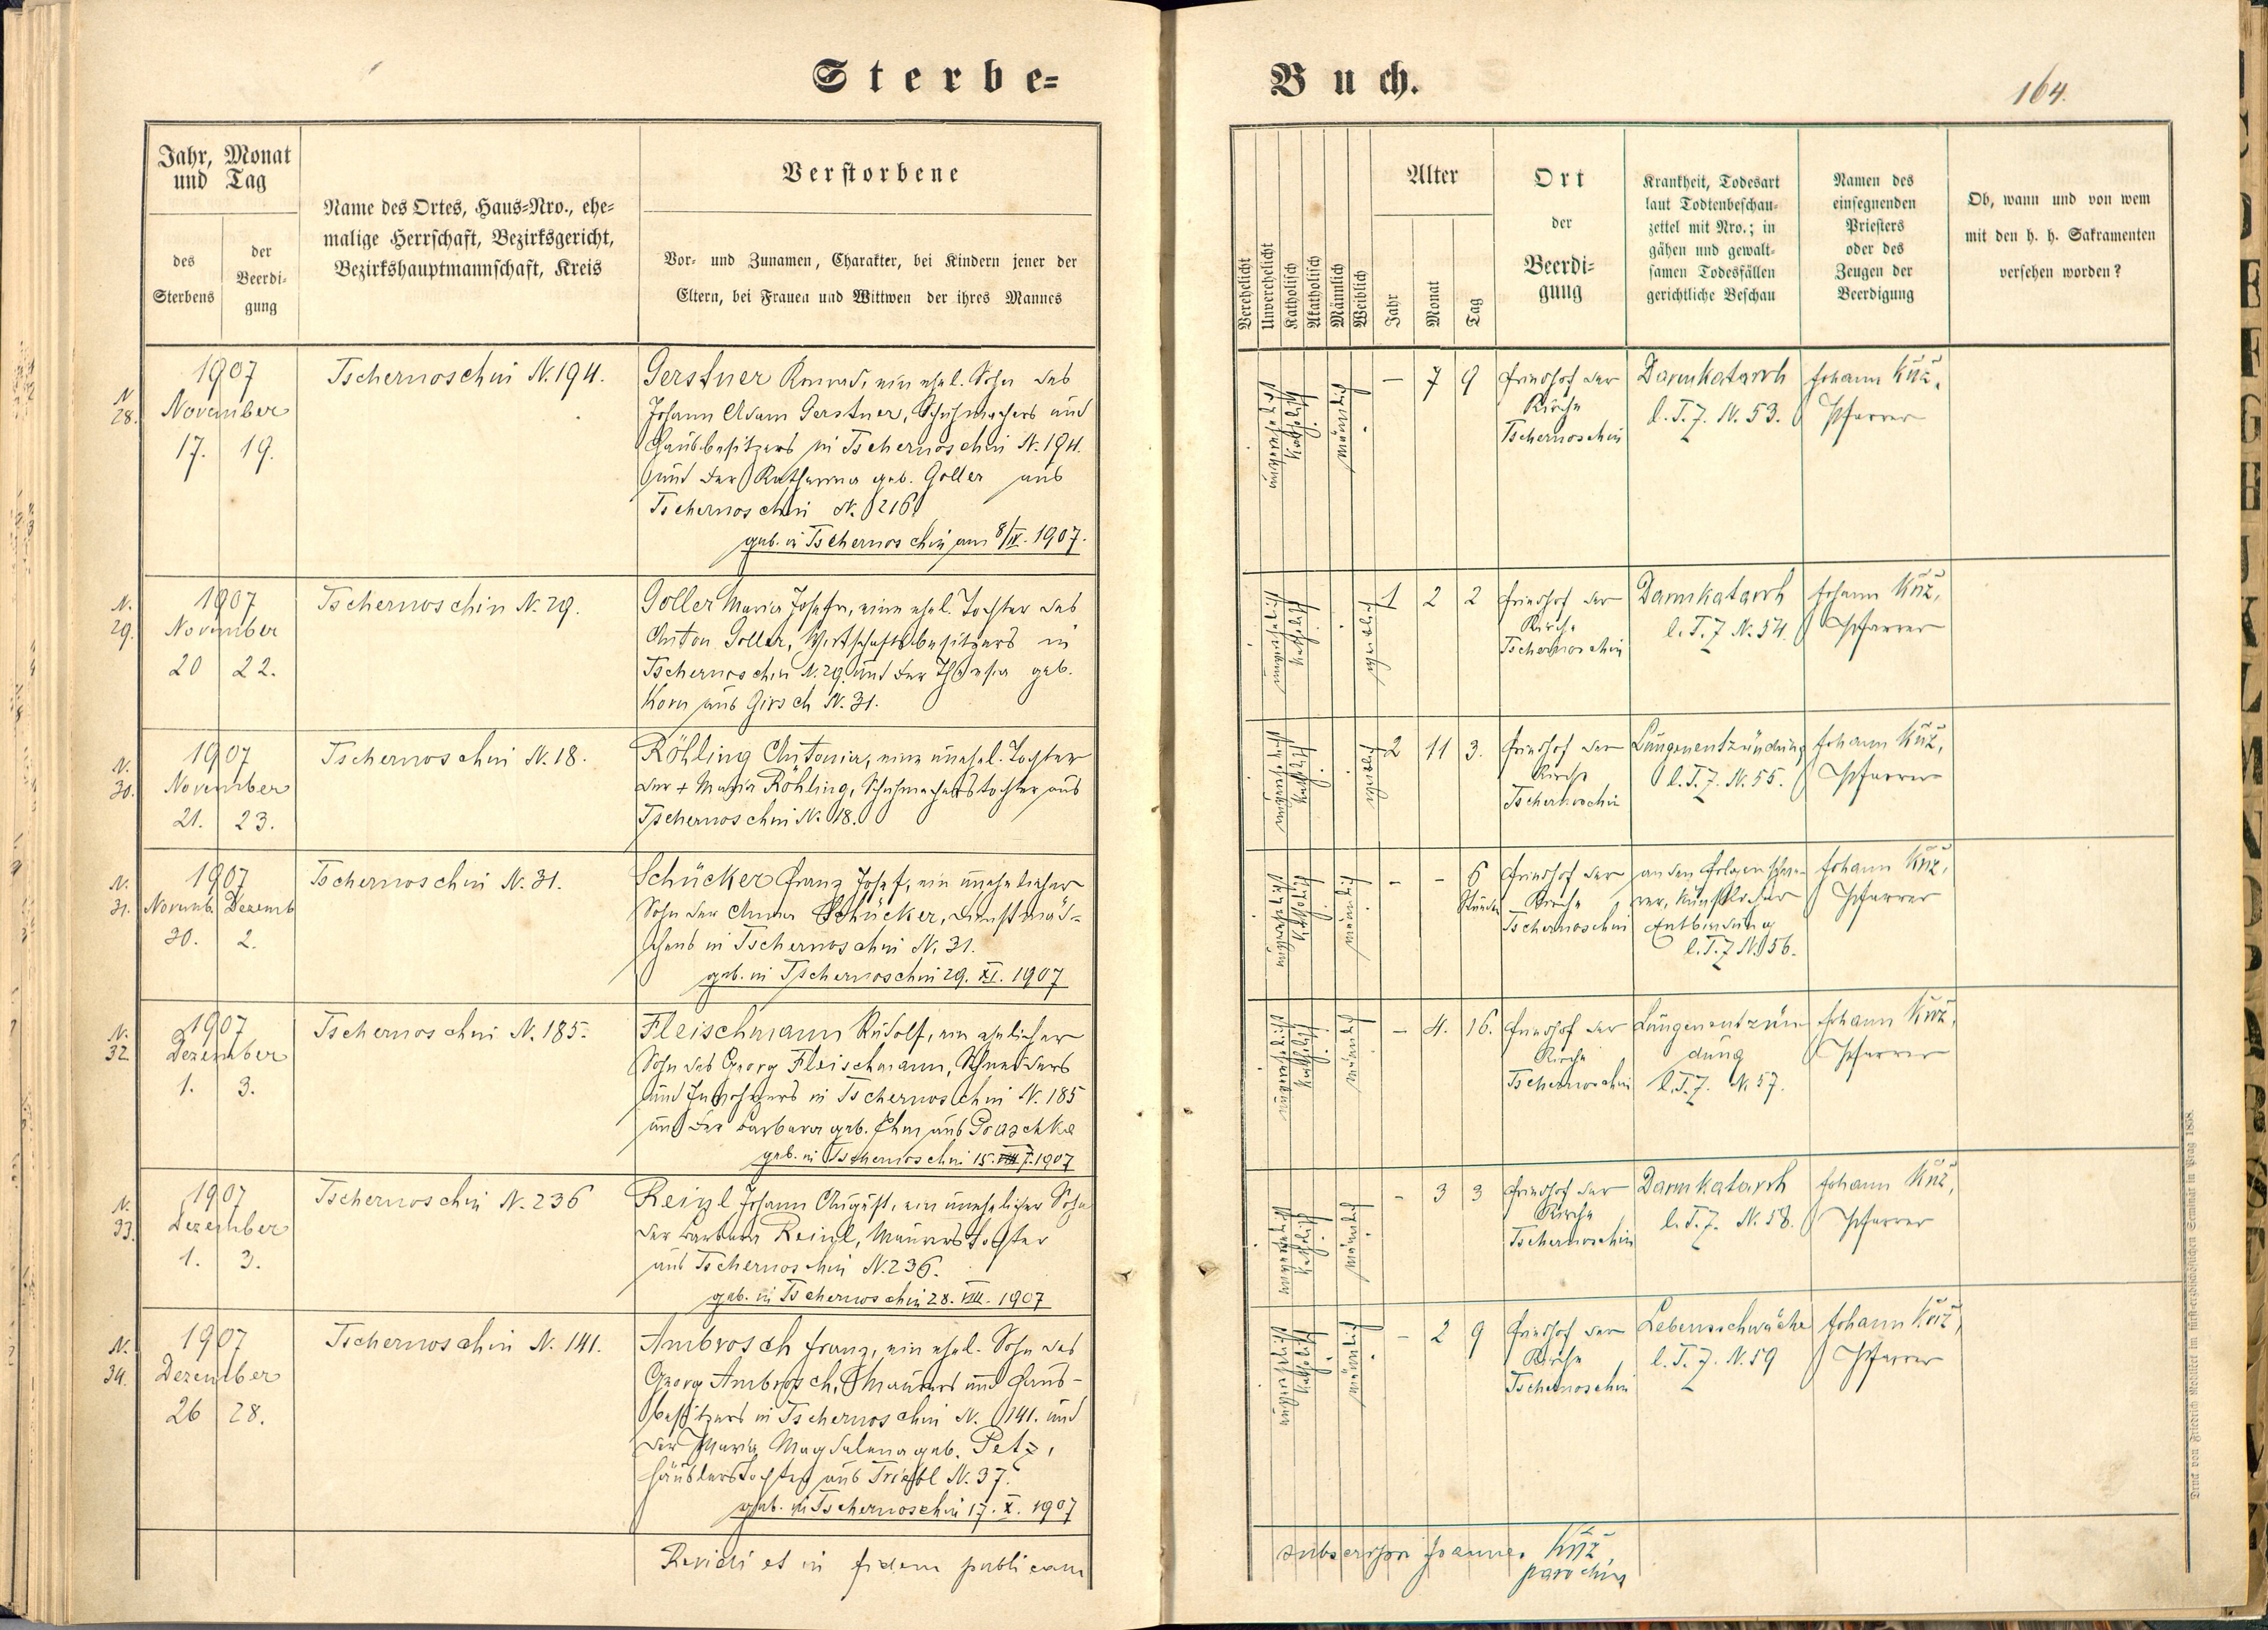 Sterbe=
Buch.
164.
Jahr, Monat
und Tag
des
Sterbens
der
Beerdi=
gung
Name des Ortes, Haus=Nro., ehe=
malige Herrschaft, Bezirksgericht,
Bezirkshauptmannschaft, Kreis
Verstorbene
Vor= und Zunamen, Charakter, bei Kindern jener der
Eltern, bei Frauen und Wittwen der ihres Mannes
Verehelicht
Unverehelicht
Katholisch
Akatholisch
Männlich
Weiblich
Alter
Jahr
Monat
Tag
Ort
der
Beerdi=
gung
Krankheit, Todesart
laut Todtenbeschau=
zettel mit Nro.; in
gähen und gewalt=
samen Todesfällen
gerichtliche Beschau
Namen des
einsegnenden
Priesters
oder des
Zeugen der
Beerdigung
Ob, wann und von wem
mit den h. h. Sakramenten
versehen worden?
N
28.
1907
November
17. 19.
Tschernoschin N. 194.
Gerstner Konrad, ein ehel. Sohn des
Johann Adam Gerstner, Schuhmachers und
Hausbesitzers in Tschernoschin N. 194.
und der Katharina geb. Goller aus
Tschernoschin N. 216.
geb. in Tschernoschin am 8/IV. 1907.
unverehelicht
katholisch
männlich
— 7 9
Friedhof der
Kirche
Tschernoschin
Darmkatarrh
l. T. Z. N. 53.
Johann Kňž,
Pfarrer
N.
29.
1907
November
20 22.
Tschernoschin N. 29.
Goller Maria Josefa, eine ehel. Tochter des
Anton Goller, Wirtschaftsbesitzers in
Tschernoschin N. 29 und der Theresia geb.
Korn aus Girsch N. 31.
unverehelicht
katholisch
weiblich
1 2 2
Friedhof der
Kirche
Tschernoschin
Darmkatarrh
l. T. Z N. 54.
Johann Kňž,
Pfarrer
N.
30.
1907
November
21. 23.
Tschernoschin N. 18.
Röhling Antonia, eine unehel. Tochter
der + Maria Röhling, Schuhmacherstochter aus
Tschernoschin N. 18.
unverehelicht
katholisch
weiblich
2 11 3.
Friedhof der
Kirche
Tschernoschin
Lungenentzündung
l. T. Z. N. 55.
Johann Kňž,
Pfarrer
N.
31.
1907
Novemb. Dezemb
30. 2.
Tschernoschin N. 31.
Schücker Franz Josef, ein unehelicher
Sohn der Anna Schücker, Dienstmäd=
chens in Tschernoschin N. 31.
geb. in Tschernoschin 29. XI. 1907
unverehelicht
katholisch
männlich
- - 6
Stunden
Friedhof der
Kirche
Tschernoschin
an den Folgen schwe=
rer, künstlicher
Entbindung
l. T. Z N. 56.
Johann Kňž,
Pfarrer
N.
32.
1907
Dezember
1. 3.
Tschernoschin N. 185.
Fleischmann Rudolf, ein ehelicher
Sohn des Georg Fleischmann, Schneiders
und Inwohners in Tschernoschin N. 185
und der Barbara geb. aus
geb. in Tschernoschin 15. 7. 1907
unverehelicht
katholisch
männlich
- 4. 16.
Friedhof der
Kirche
Tschernoschin
Lungenentzün
dung
l. T. Z. N. 57.
Johann Kňž,
Pfarrer
N.
33.
1907
Dezember
1. 3.
Tschernoschin N. 236
Reinl Johann August, ein unehelicher Sohn
der Barbara Reinl, Maurerstochter
aus Tschernoschin N. 236.
geb. in Tschernoschin 28. VIII. 1907
unverehelicht
katholisch
männlich
- 3 3
Friedhof der
Kirche
Tschernoschin
Darmkatarrh
l. T. Z. N. 58.
Johann Kňž,
Pfarrer
N.
34.
1907
Dezember
26 28.
Tschernoschin N. 141.
Ambrosch Franz, ein ehel. Sohn des
Georg Ambrosch, Maurers und Haus=
besitzers in Tschernoschin N. 141. und
der Maria Magdalena geb. Petz,
Häuslerstochter aus Triebl N. 37.
geb. in Tschernoschin 17. X. 1907
unverehelicht
katholisch
männlich
- 2 9
Friedhof der
Kirche
Tschernoschin
Lebensschwäche
l. T. Z. N. 59
Johann Kňž,
Pfarrer
Revidi et in fidem publicam
subscripsi Joannes Kňž
parochus
Druck von Friedrich Rohliček im fürst=erzbischöflichen Seminär in Prag 1888.